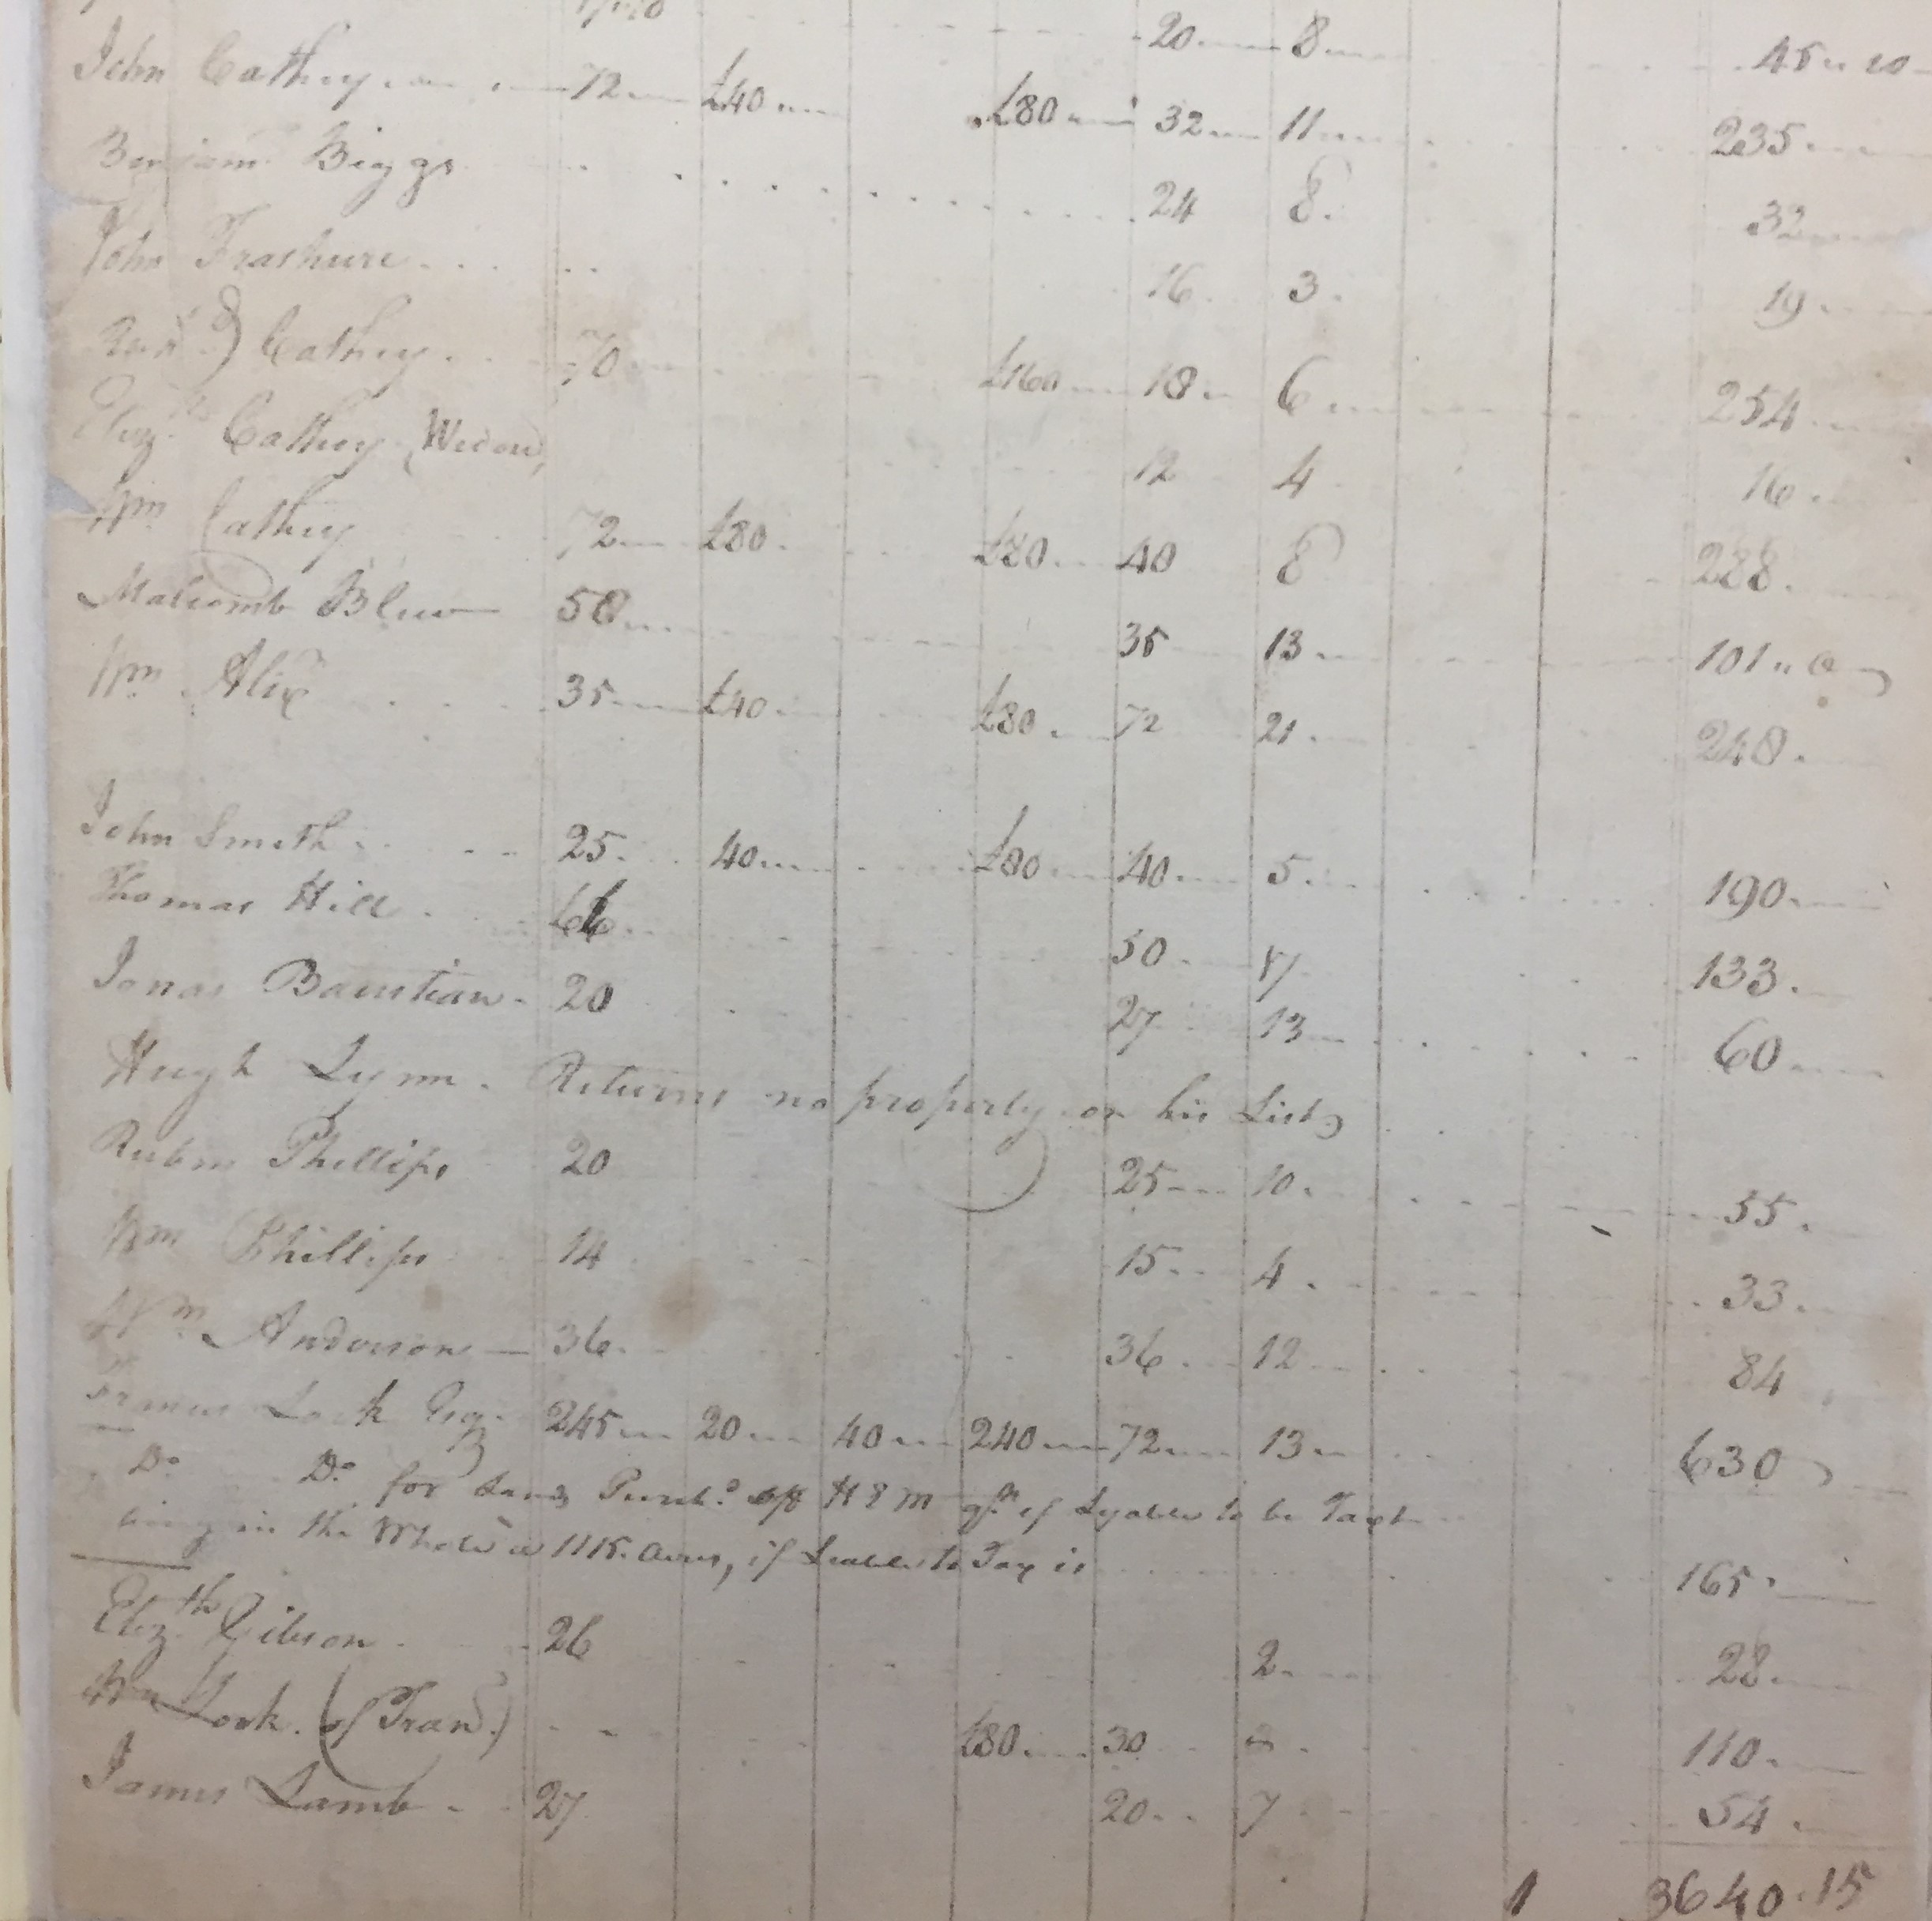 20 8 45 " 10
John Cathey 72 £40 £80 32 11 235
Benjamn Biggs 24 8 32
John Frashure 16 3 19
Cathey 70 £160 18 6 254
Elizth Cathey (Widow) 12 4 16
Wm Cathey 72 £80 £80 40 8 288
Malcomb Blew 50 35 13 101 " 0
Wm Alexr 35 £40 £80 72 21 248
John Smith 25 40 £80 40 5 190
Thomas Hill 66 50 17 133
Jonas Baustian 20 27 13 60
Hugh Lynn Returns no property on his List
Rubin Phillips 20 25 10 55
Wm Phillips 14 15 4 33
Wm Anderson 36 36 12 84
Francis Lock Esq. 245 20 40 240 72 13 630
Do Do for Land Purchd off H & M if Lyable to be Taxt
being in the Whole 1115 acres, if Liable to Tax is 165
Elizth Gibson 26 2 28
Wm Lock (of Frans) £80 30 110
James Lamb 27 20 7 54
1 3640.15